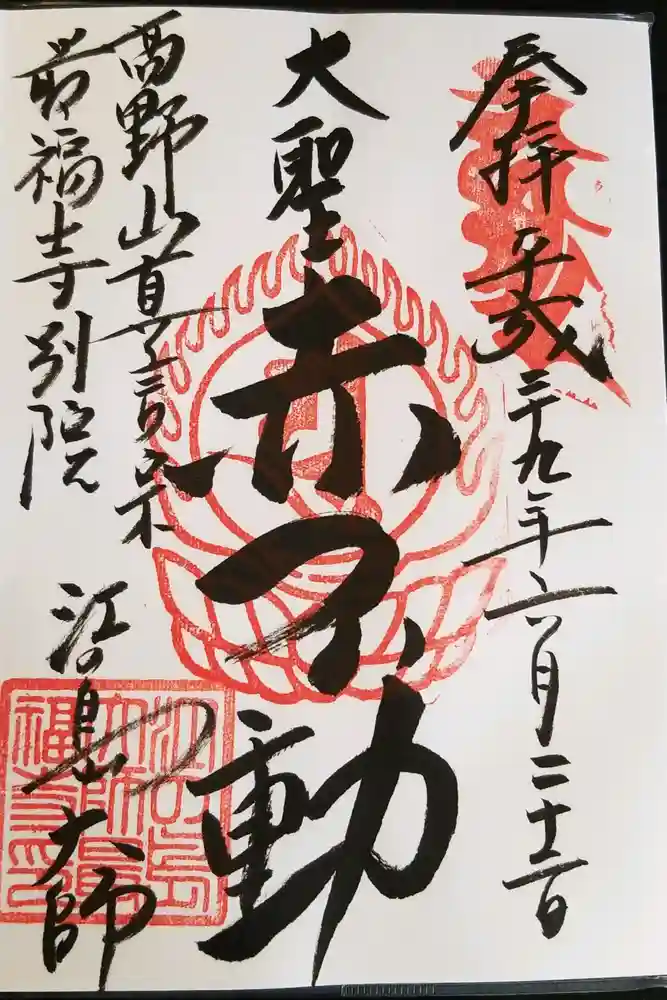 奉拝 平成二十九年六月二十二日
大聖
赤不動
高野山真言宗
最福寺別院
江の島大師